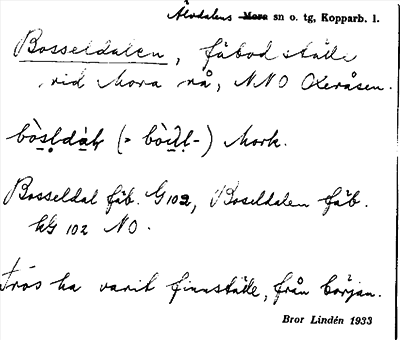 Älvdalens Mora sn o. tg, Kopparb. l.
Bosseldalen, fäbodställe
vid Mora rå, NNO Oxråsen.
bòsḷdàḷ (= bòıl̥-) Mork.
Bosseldal fäb. G102, Boseldalen fäb.
kG 102 NO.
Tros ha varit finnställe, från början.
Bror Lindén 1933